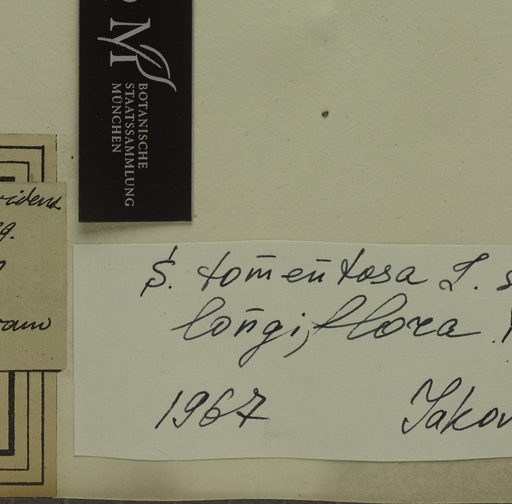 M
BOTANISCHE
STAATSSAMMLUNG
MÜNCHEN
S. tomentosa L. s
longiflora
1967 Jakov